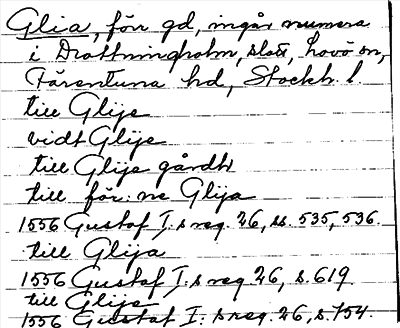 Glia, förr gd, ingår numera
i Drottningholm, slott, Lovö sn,
Färentuna hd, Stockh. l.
till Glije
vidt Glije
till Glije gårdh
till för:ne Glija
1556 Gustaf I:s reg. 26, ss. 535, 536.
till Glija
1556 Gustaf I:s reg. 26, s. 619.
till Glije
1556 Gustaf I:s reg. 26, s. 754.